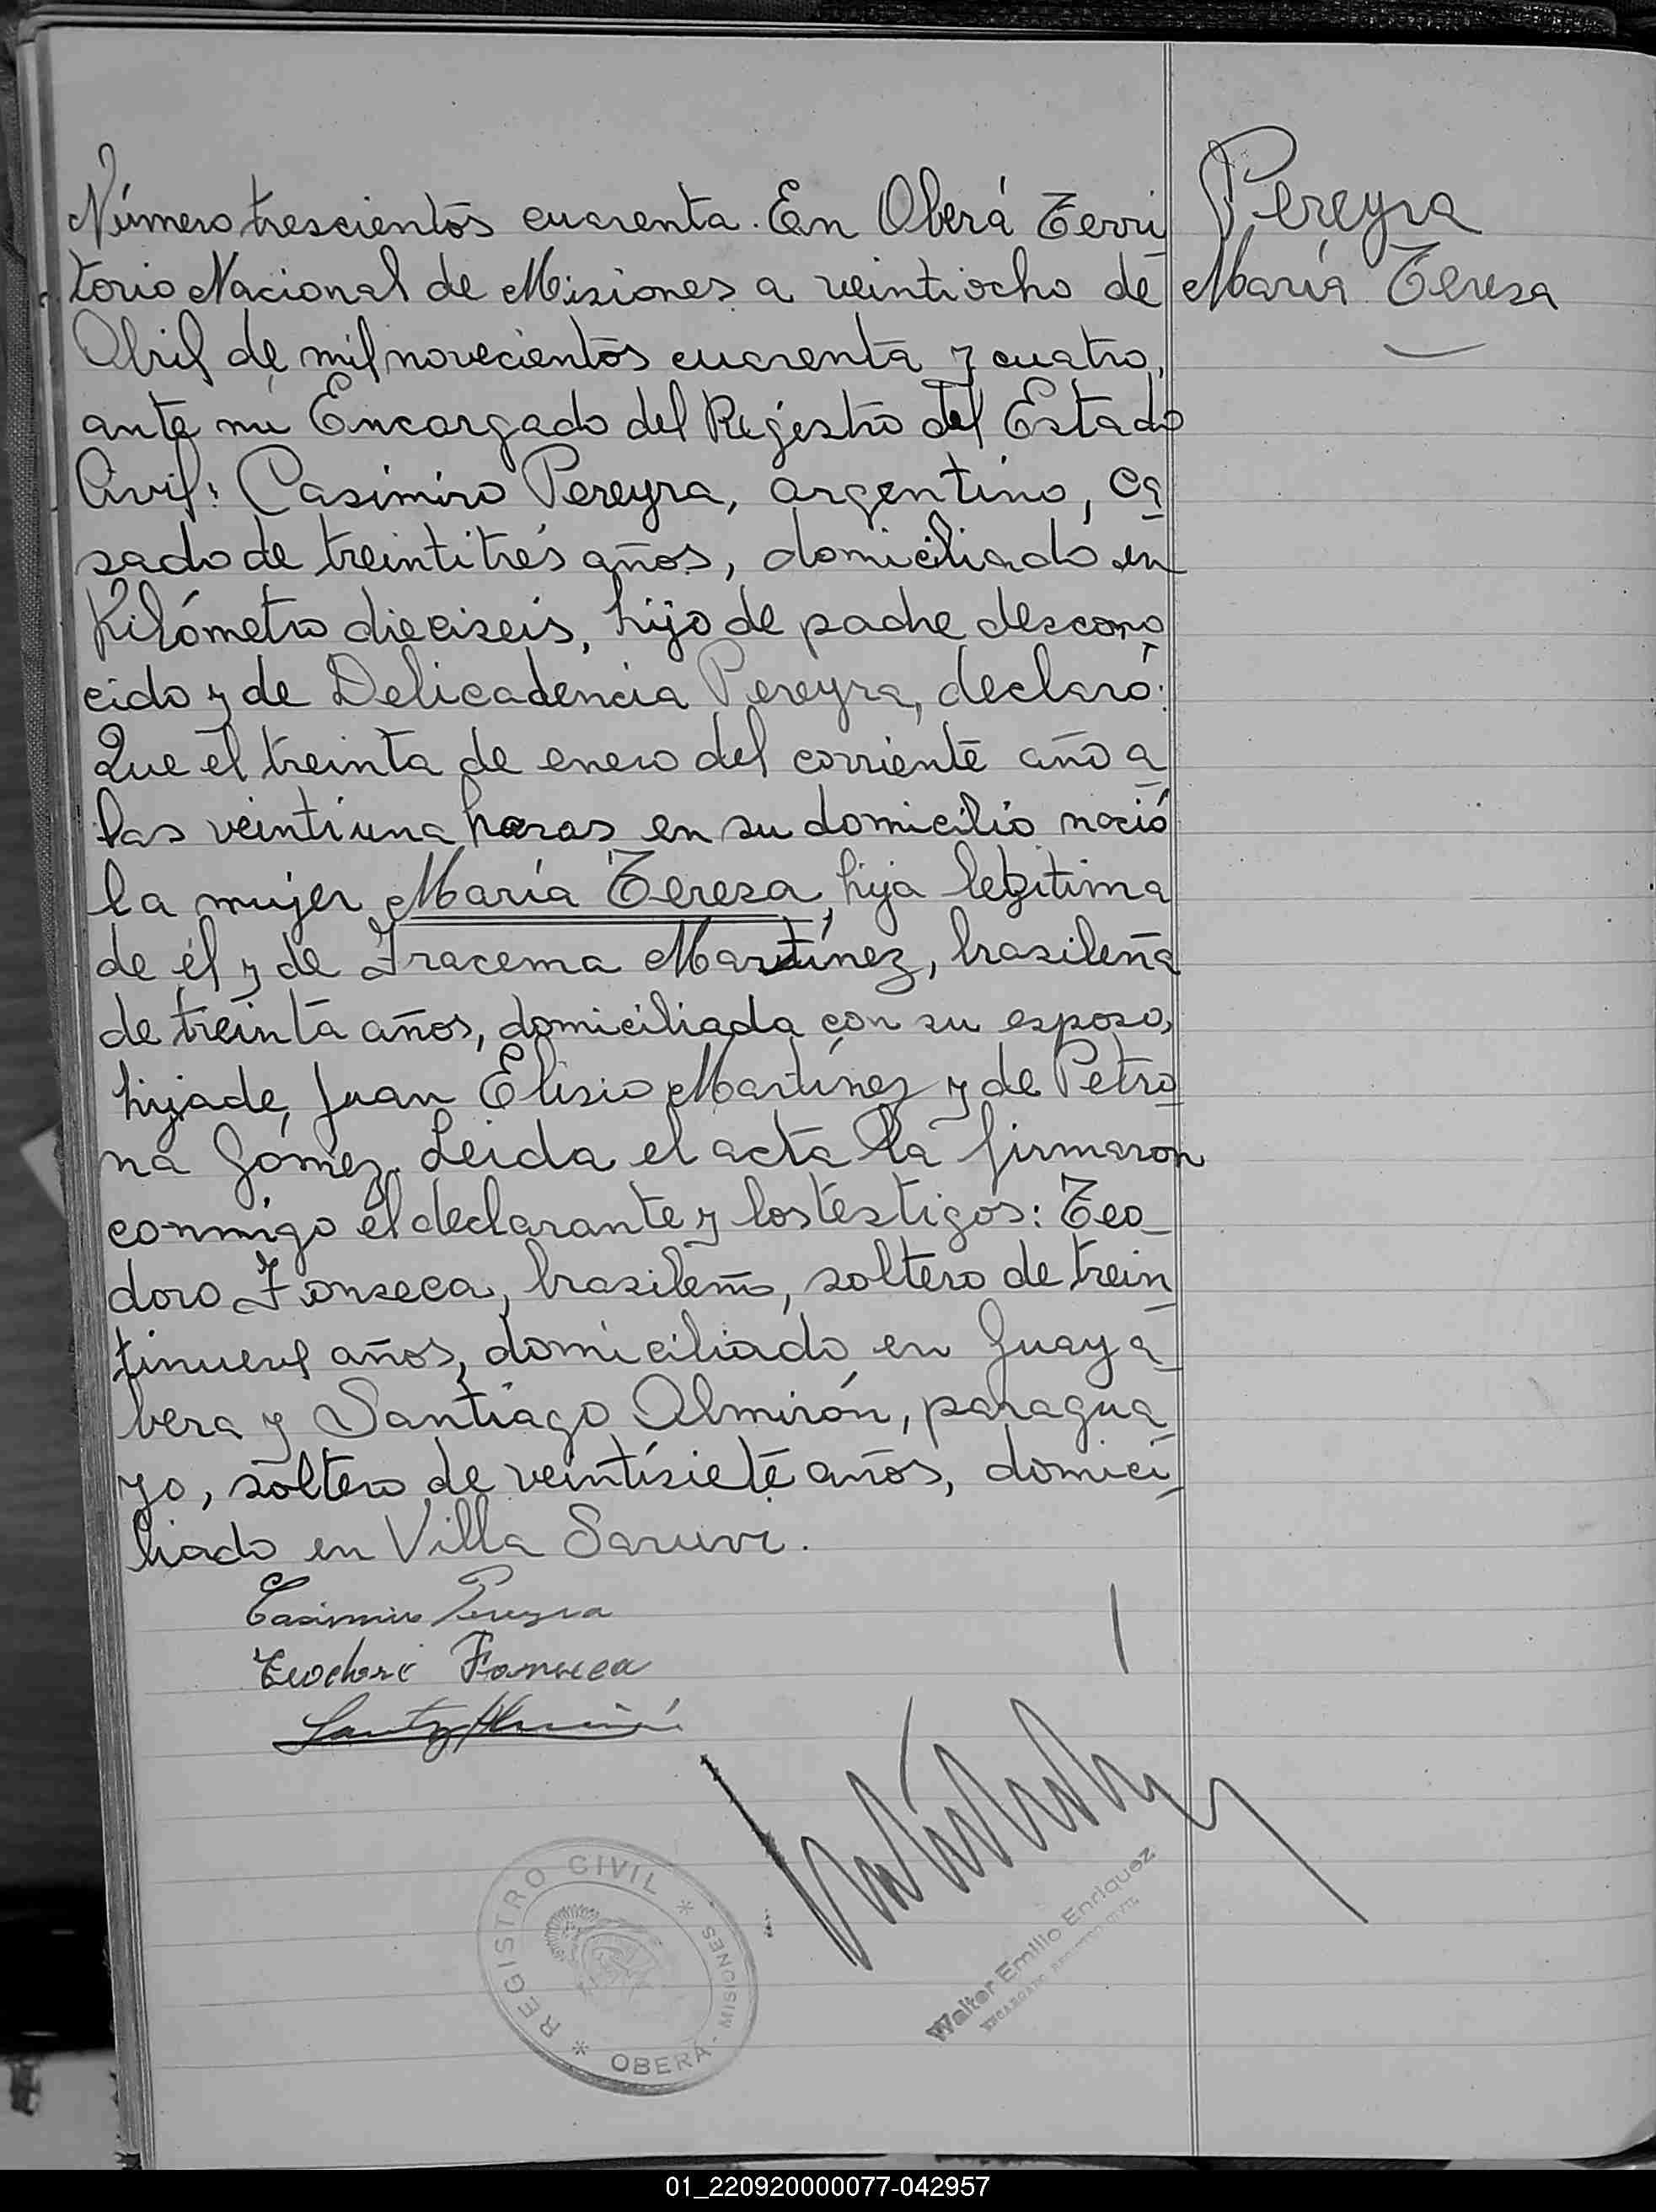 Pereyra
María Teresa
Número trescientos cuarenta. En Oberá Terri
torio Nacional de Misiones a veintiocho de
Abril de mil novecientos cuarenta y cuatro,
ante mí Encargado del Registro del Estado
Civil: Casimiro Pereyra, argentino, ca
sado de treintitrés años, domiciliado en
Kilómetro dieciseis, hijo de padre descono
cido y de Delicadencia Pereyra, declaró:
Que el treinta de enero del corriente año a
las veintiuna horas en su domicilio nació
la mujer María Teresa, hija legítima
de él y de Iracema Martínez, brasileña
de treinta años, domiciliada con su esposo,
hija de Juan Elisio Martínez y de Petro
na Gómez. Leida el acta la firmaron
conmigo el declarante y los testigos: Teo
doro Fonseca, brasileño, soltero de trein
tinueve años, domiciliado en Guaya
bera y Santiago Almirón, paragua
yo, soltero de veintisiete años, domici
liado en Villa Saruvi.
Casimiro Pereyra
Teodoro Fonseca
REGISTRO CIVIL * OBERÁ - MISIONES *
Walter Emilio Enriquez
ENCARGADO REGISTRO CIVIL
01_220920000077-042957